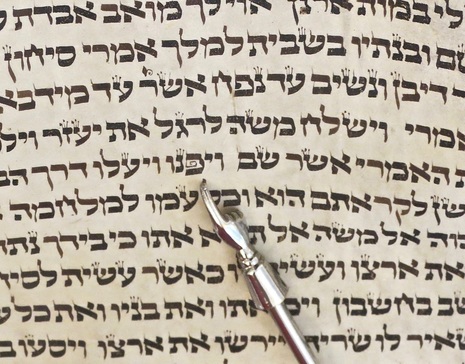 לי במות ארנן אוי לך מואב אבד
ם ובנתיו בשבית למלך אמרי סיחון
דיבן ונשים עד נפח אשר עד מידבא
אמרי וישלח משה לרגל את יעזר ויל
ת האמרי אשר שם ויפנו ויעלו דרך הב
שן לקראתם הוא וכל עמו למלחמה
יהוה אל משה אל א אתו כי בידך נתת
ואת ארצו ועשית כאשר עשית לסי
שב בחשבון ויכו אתו ואת בניו ואת כל ע
שאיר לו שריד ויירשו את ארצו ויסעו ב